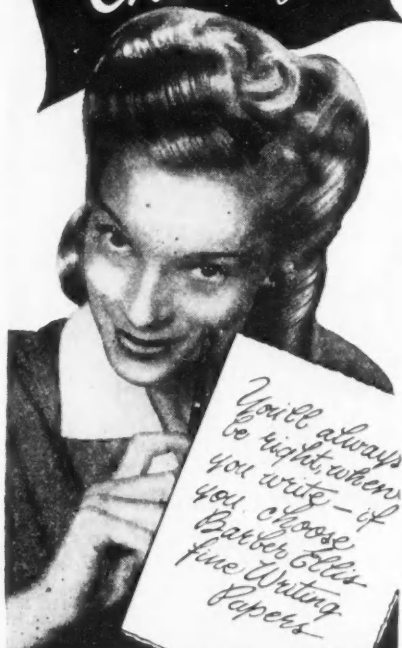 You'll always
be right, when
you write – if
you choose
Barber Ellis
fine Writing
Papers